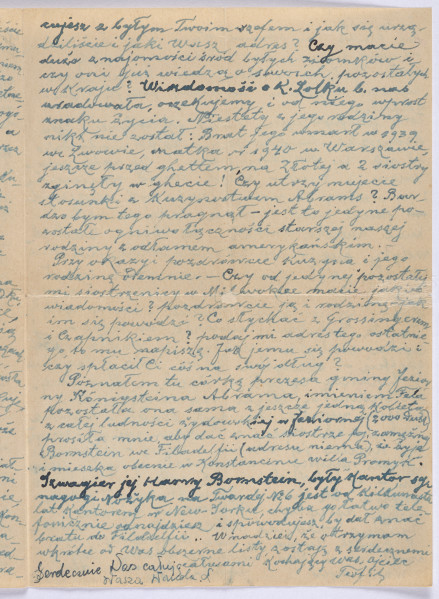 cujesz z byłym Twoim szefem i jak się urzą-
dziliście i jaki Wasz adres? Czy macie
dużo znajomości śród byłych ziomków i
czy oni już wiedzą o swoich, pozostałych
w kraju? Wiadomość o K. Lolku b. nas
uradowała, oczekujemy i od niego wprost
znaku życia. Niestety z jego rodziny
nikt nie został: Brat jego umarł w 1939
we Lwowie, matka w 1940 w Warszawie
jeszcze przed ghettem, na Złotej a 2 siostry
zginęły w ghecie! Czy utrzymujecie
stosunki z Kuzynostwem Abrams? Bar-
dzo bym tego pragnął - jest to jedyne po-
zostałe ogniwo łączności starszej naszej
rodziny z odłamem amerykańskim. -
Przy okazji pozdrówcie Kuzyna i jego
rodzinę odemnie. - Czy od jedynej pozostałej
mi siostrzenicy w Milwokee macie jakieś
wiadomości? pozdrówcie ją i rodzinę - jak
im się powodzi? Co słychać z
i Czapnikiem? podaj mi adres tego ostatnie-
go, to mu napiszę. Jak jemu się powodzi i
czy spłacił Ci coś na swój dług?
Poznałem tu córkę prezesa gminy Jezior-
ny Königsteina Abrama, imieniem Fela
pozostała ona sama z jeszcze jedną kobietą
z całej ludności żydowskiej w Jeziornej (2000 dusz)
prosiła mnie, aby dać znać siostrze jej, zamężnej
Bornstein we Filadelfii (adresu niema), że żyje
i mieszka obecnie w Konstancinie willa Promyk.
Szwagier jej Harry Bornstein, były kantor sy-
nagogi Nożyka na Twardej N° 6 jest od kilkunastu
lat kantorem w New-Yorku, chyba go łatwo tele-
fonicznie odnajdziesz i spowodujesz, by dał znać
bratu do Fildelfii. . W nadziei, że otrzymam
wkrótce od Was obszerne listy zostaję z serdecznemi
Serdecznie Was całuję całusami Kochający Was Ojciec
Wasza